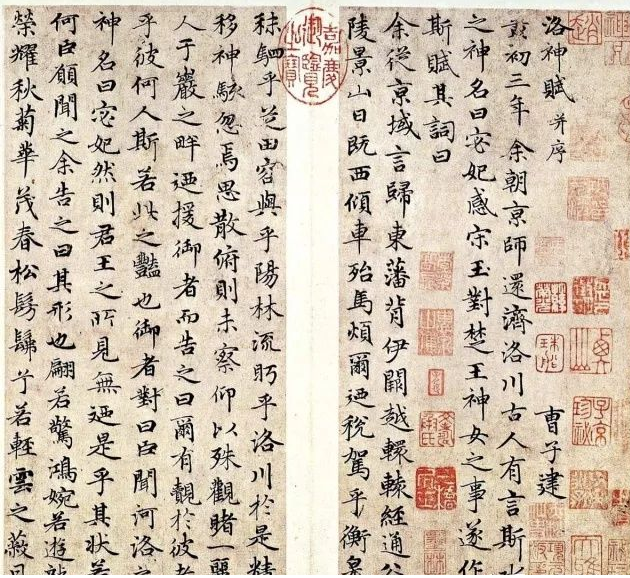 洛神賦 并序 曹子建
黃初三年余朝京師還濟洛川古人有言斯水
之神名曰宓妃感宋玉對楚王神女之事遂作
斯賦其詞曰
余從京域言歸東藩背伊闕越轘轅經通
陵景山日既西傾車殆馬煩爾迺稅駕乎衡皋
秣駟乎芝田容與乎陽林流眄乎洛川於是精
移神駭忽焉思散俯則未察仰以殊觀睹一麗
人于巖之畔迺援御者而告之曰爾有覿於彼者
乎彼何人斯若此之豔也御者對曰臣聞河洛之
神名曰宓妃然則君王之所見無迺是乎其狀若
何臣願聞之余告之曰其形也翩若驚鴻婉若遊
榮耀秋菊華茂春松髣髴兮若輕雲之蔽
嘉慶御覽之寶